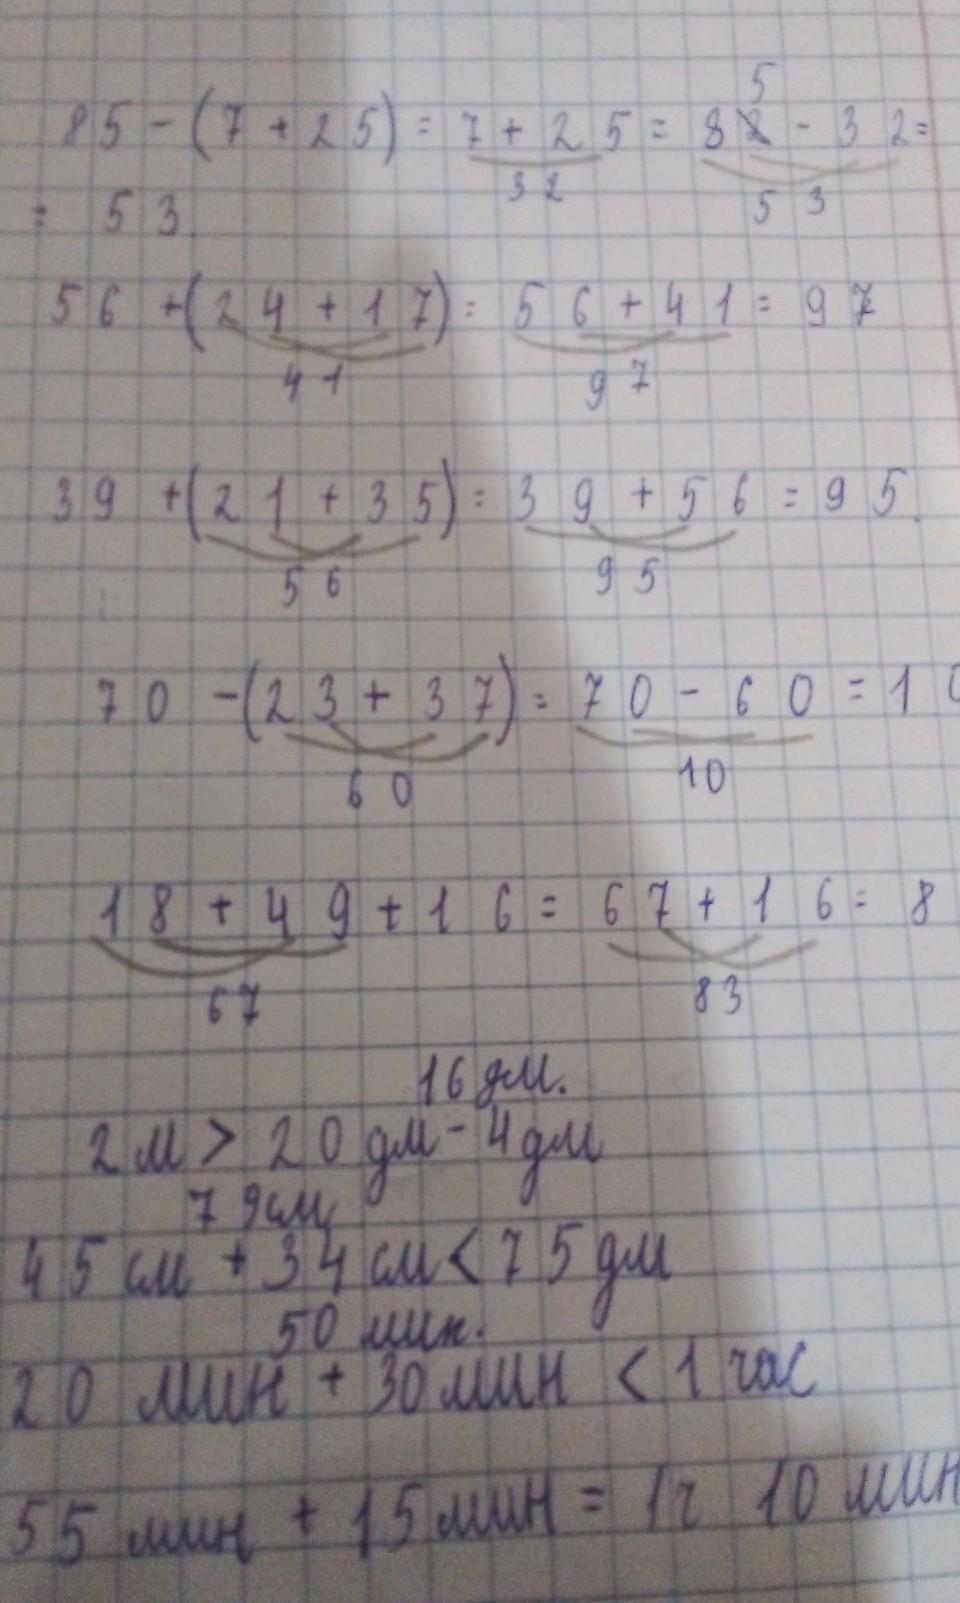 5
85 - (7 + 25) = 7 + 25 = 82 - 32 =
32
53
= 53.
56 + (24 + 17) = 56 + 41 = 97
41
97
39 + (21 + 35) = 39 + 56 = 95.
56
95
70 - (23 + 37) = 70 - 60 = 10
60
10
18 + 49 + 16 = 67 + 16 = 8
67
83
16 дм.
2 м > 20 дм - 4 дм
79 см
45 см + 34 см < 75 дм
50 мин.
20 мин + 30 мин < 1 час
55 мин + 15 мин = 1 ч 10 мин